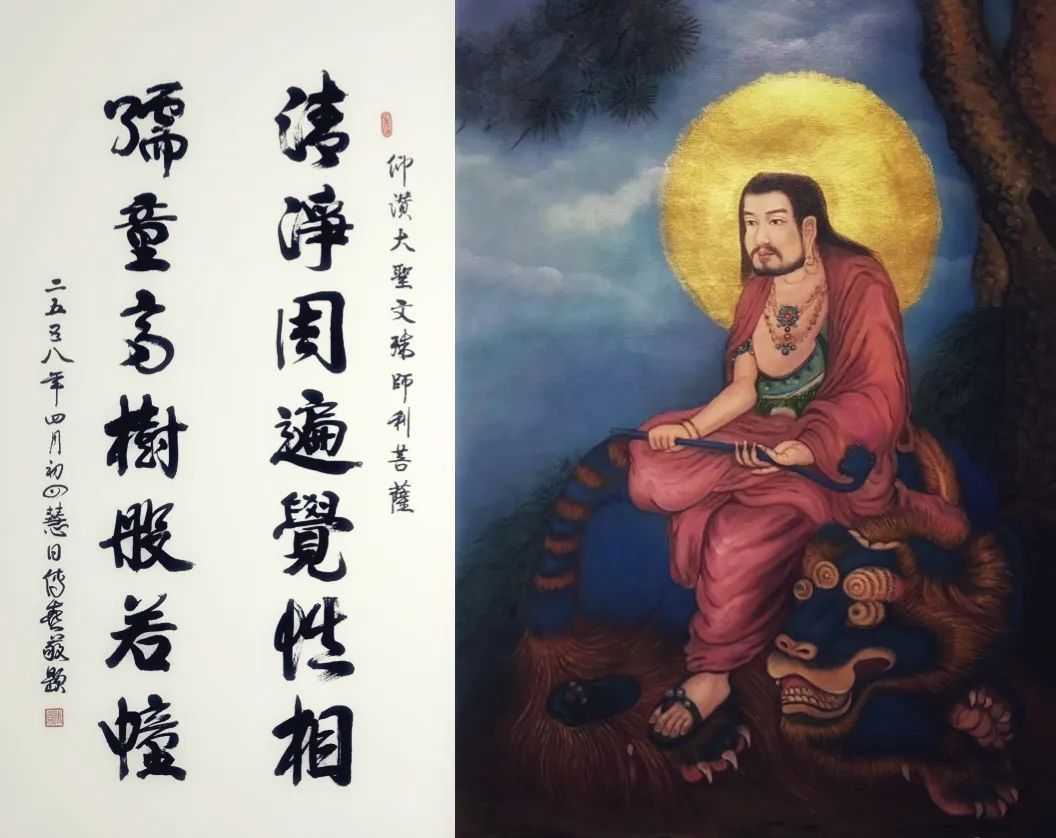 仰讚大聖文殊師利菩薩
清淨周遍覺性相
孺童高樹般若幢
二五五八年四月初四慧日傳喜敬題